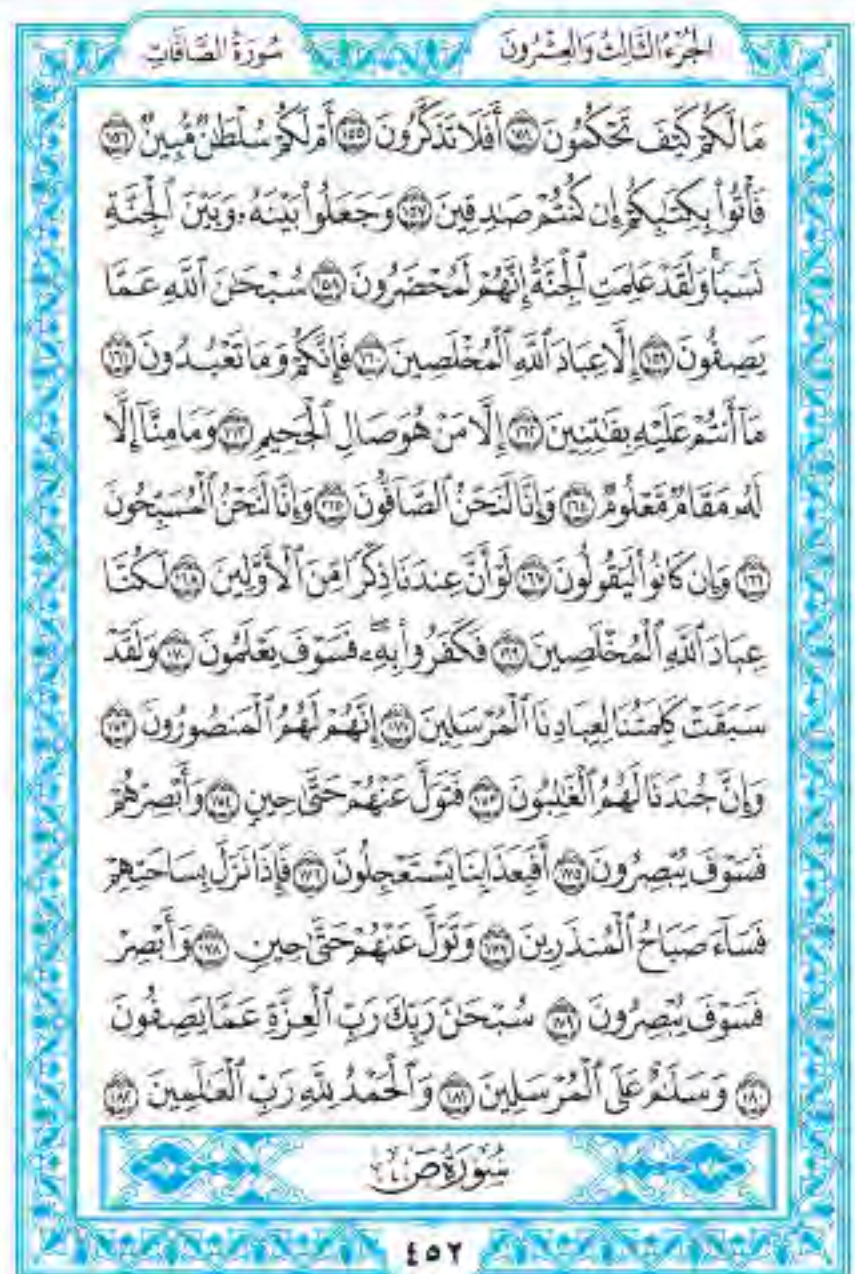 الجزء الثالث والعشرون
سورة الصافات
مَا لَكُمْ كَيْفَ تَحْكُمُونَ ١٥٤ أَفَلَا تَذَكَّرُونَ ١٥٥ أَمْ لَكُمْ سُلْطَٰنٌ مُّبِينٌ ١٥٦
فَأْتُوا۟ بِكِتَٰبِكُمْ إِن كُنتُمْ صَٰدِقِينَ ١٥٧ وَجَعَلُوا۟ بَيْنَهُۥ وَبَيْنَ ٱلْجِنَّةِ
نَسَبًا ۚ وَلَقَدْ عَلِمَتِ ٱلْجِنَّةُ إِنَّهُمْ لَمُحْضَرُونَ ١٥٨ سُبْحَٰنَ ٱللَّهِ عَمَّا
يَصِفُونَ ١٥٩ إِلَّا عِبَادَ ٱللَّهِ ٱلْمُخْلَصِينَ ١٦٠ فَإِنَّكُمْ وَمَا تَعْبُدُونَ ١٦١
مَآ أَنتُمْ عَلَيْهِ بِفَٰتِنِينَ ١٦٢ إِلَّا مَنْ هُوَ صَالِ ٱلْجَحِيمِ ١٦٣ وَمَا مِنَّآ إِلَّا
لَهُۥ مَقَامٌ مَّعْلُومٌ ١٦٤ وَإِنَّا لَنَحْنُ ٱلصَّآفُّونَ ١٦٥ وَإِنَّا لَنَحْنُ ٱلْمُسَبِّحُونَ
١٦٦ وَإِن كَانُوا۟ لَيَقُولُونَ ١٦٧ لَوْ أَنَّ عِندَنَا ذِكْرًا مِّنَ ٱلْأَوَّلِينَ ١٦٨ لَكُنَّا
عِبَادَ ٱللَّهِ ٱلْمُخْلَصِينَ ١٦٩ فَكَفَرُوا۟ بِهِۦ ۖ فَسَوْفَ يَعْلَمُونَ ١٧٠ وَلَقَدْ
سَبَقَتْ كَلِمَتُنَا لِعِبَادِنَا ٱلْمُرْسَلِينَ ١٧١ إِنَّهُمْ لَهُمُ ٱلْمَنصُورُونَ ١٧٢
وَإِنَّ جُندَنَا لَهُمُ ٱلْغَٰلِبُونَ ١٧٣ فَتَوَلَّ عَنْهُمْ حَتَّىٰ حِينٍ ١٧٤ وَأَبْصِرْهُمْ
فَسَوْفَ يُبْصِرُونَ ١٧٥ أَفَبِعَذَابِنَا يَسْتَعْجِلُونَ ١٧٦ فَإِذَا نَزَلَ بِسَاحَتِهِمْ
فَسَآءَ صَبَاحُ ٱلْمُنذَرِينَ ١٧٧ وَتَوَلَّ عَنْهُمْ حَتَّىٰ حِينٍ ١٧٨ وَأَبْصِرْ
فَسَوْفَ يُبْصِرُونَ ١٧٩ سُبْحَٰنَ رَبِّكَ رَبِّ ٱلْعِزَّةِ عَمَّا يَصِفُونَ
١٨٠ وَسَلَٰمٌ عَلَى ٱلْمُرْسَلِينَ ١٨١ وَٱلْحَمْدُ لِلَّهِ رَبِّ ٱلْعَٰلَمِينَ ١٨٢
سُورَةُ صٓ
٤٥٢